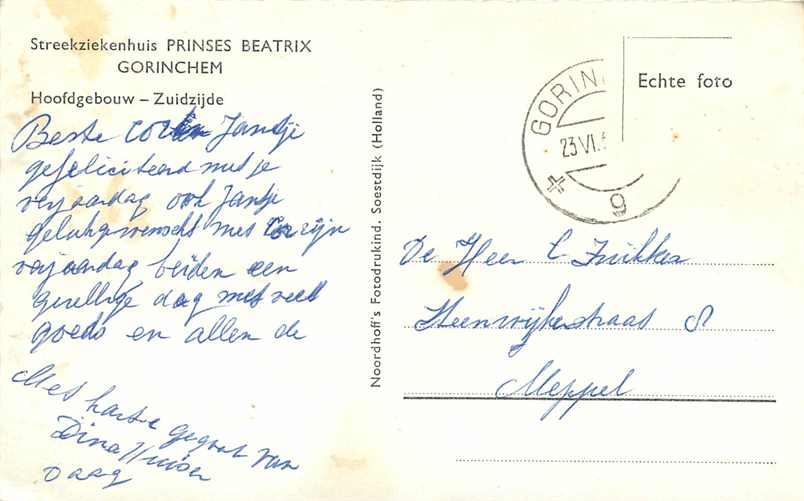 Streekziekenhuis PRINSES BEATRIX
GORINCHEM
Hoofdgebouw – Zuidzijde
Beste Cor en Jantje
gefeliciteerd met je
verjaardag ook Jantje
gelukgewenscht met Cor zijn
verjaardag beiden een
gezellige dag met veel
goeds en allen de
Met harte gegroet van
Dina Huiser
Daag
Noordhoff's Fotodrukind. Soestdijk (Holland)
GORIN
23 VI.
9
Echte foto
De Heer C
Steenwijkerstraat 8
Meppel